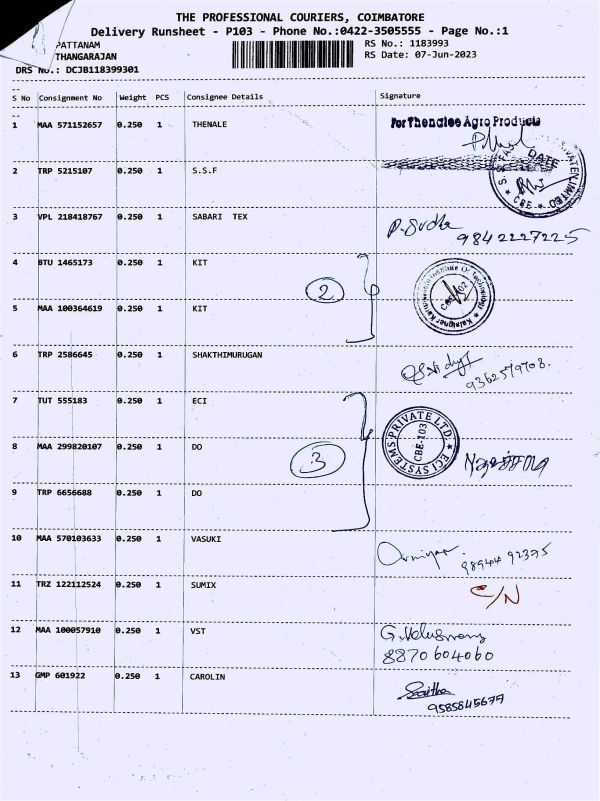 THE PROFESSIONAL COURIERS, COIMBATORE
Delivery Runsheet - P103 - Phone No.:0422-3505555 - Page No.:1
PATTANAM
THANGARAJAN
DRS No.: DCJB118399301
RS No.: 1183993
RS Date: 07-Jun-2023
S No Consignment No Weight PCS Consignee Details Signature
1 MAA 571152657 0.250 1 THENALE
For Thenclee Agro Products
2 TRP 5215107 0.250 1 S.S.F
DATE
CBE
3 VPL 218418767 0.250 1 SABARI TEX
P. Sudha
9842227225
4 BTU 1465173 0.250 1 KIT
2
5 MAA 100364619 0.250 1 KIT
6 TRP 2586645 0.250 1 SHAKTHIMURUGAN
9362579708.
7 TUT 555183 0.250 1 ECI
ECI SYSTEMS PRIVATE LTD.
CBE-103
8 MAA 299820107 0.250 1 DO
3
9 TRP 6656688 0.250 1 DO
10 MAA 570103633 0.250 1 VASUKI
98944 92375
11 TRZ 122112524 0.250 1 SUMIX
C/N
12 MAA 100057910 0.250 1 VST
8870604060
13 GMP 601922 0.250 1 CAROLIN
9585845679